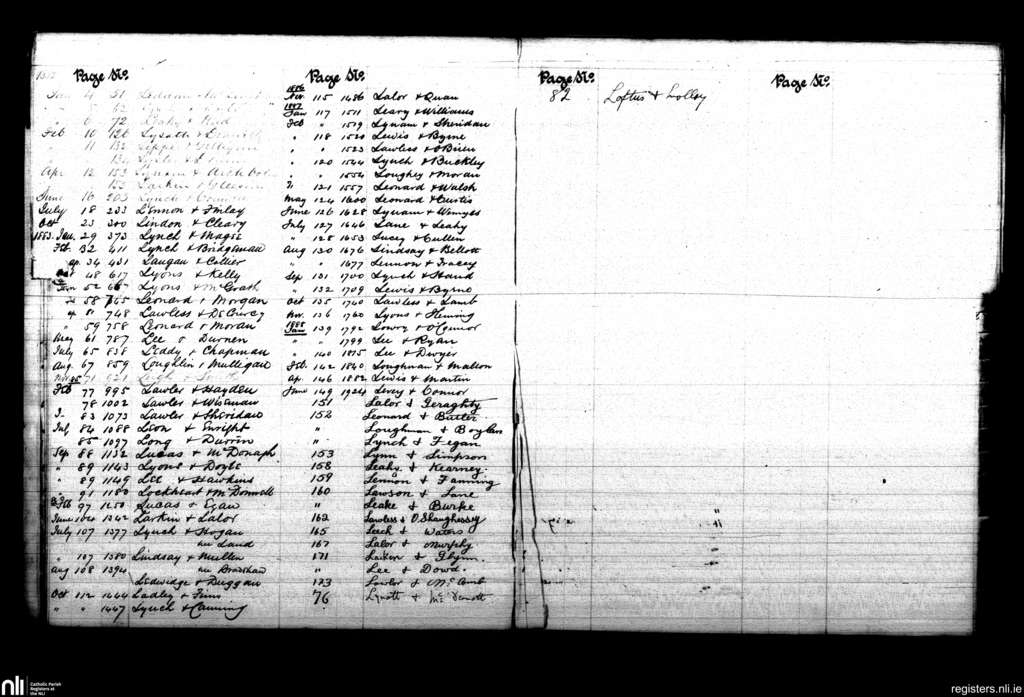 Page No.
Page No.
Page No.
Page No.
Jan 4 51
5 62
6 72
Feb 10 126 Lysatt &
11 132
134
Apr 12 153 Lynam & Archbold
155 Larkin & Gleeson
June 16 203 Lynch & Connor
July 18 233 Lennon & Finlay
Oct 23 300 Lindon & Cleary
1883. Jan. 29 373 Lynch & Magee
Feb 32 411 Lynch & Bridgeman
ap. 34 431 Langan & Collier
Oct 48 617 Lyons & Kelly
52 Lyons & McGrath
58 765 Leonard & Morgan
748 Lawless & DeCourcy
" 59 758 Leonard & Moran
May 61 787 Lee & Durnen
July 65 838 Leddy & Chapman
Aug. 67 859 Loughlin & Mulligan
Nov 71 921
Feb 77 995 Lawler & Hayden
78 1002 Lawler & Wiseman
83 1073 Lawler & Sheridan
July 84 1088 Leon & Enright
85 1097 Long & Durrin
Sep 88 1132 Lucas & McDonagh
" 89 1143 Lyons & Doyle
" 89 1149 Lee & Hawkins
91 1180 Lockheart & McDonnell
Feb 97 1250 Lucas & Egan
June 104 1342 Larkin & Lalor
July 107 1377 Lynch & Hogan
nee Land
" 107 1380 Lindsay & Mullen
Aug 108 1394 nee Bradshaw
Ledwidge & Duggan
Oct 112 1444 Ladley & Finn
" " 1447 Lynch & Canning
1886
Nov. 115 1486 Lalor & Quan
1887
Jan 117 1511 Leary & Williams
Feb " 1519 Lynam & Sheridan
" 118 1520 Lewis & Byrne
" " 1523 Lawless & OBrien
" 120 1544 Lynch & Buckley
" " 1554 Loughey & Moran
" 121 1557 Leonard & Walsh
May 124 1600 Leonard & Curtis
June 126 1628 Lynam & Wemyss
July 127 1646 Lane & Leahy
" 128 1653 Lucey & Cullen
Aug 130 1676 Lindsay & Bellott
" " 1677 Lennon & Tracey
Sep 131 1700 Lynch & Hand
" 132 1709 Lewis & Byrne
Oct 135 1740 Lawless & Lamb
Nov. 136 1760 Lyons & Fleming
1888
Jan 139 1792 Lowry & O'Connor
" " 1799 Lee & Ryan
" 140 1815 Lee & Dwyer
Feb. 142 1840 Loughman & Mallon
ap. 146 1882 Lewis & Martin
June 149 1924 Levey & Connor
151 Lalor & Geraghty
152 Leonard & Butler
" Loughman & Boylan
" Lynch & Fegan
153 Lynn & Simpson
158 Leahy & Kearney
159 Lennon & Fanning
160 Lawson & Lane
" Leake & Burke
162 Lawless & O'Shaughnessy
165 Leech & Waters
167 Lalor & Murphy
171 Larkin & Glynn
" Lee & Dowd.
173 Lawlor & McCamb
76 Lynott & McDermott
82 Loftus & Lolley
nli
Catholic Parish
Registers at
the NLI
registers.nli.ie